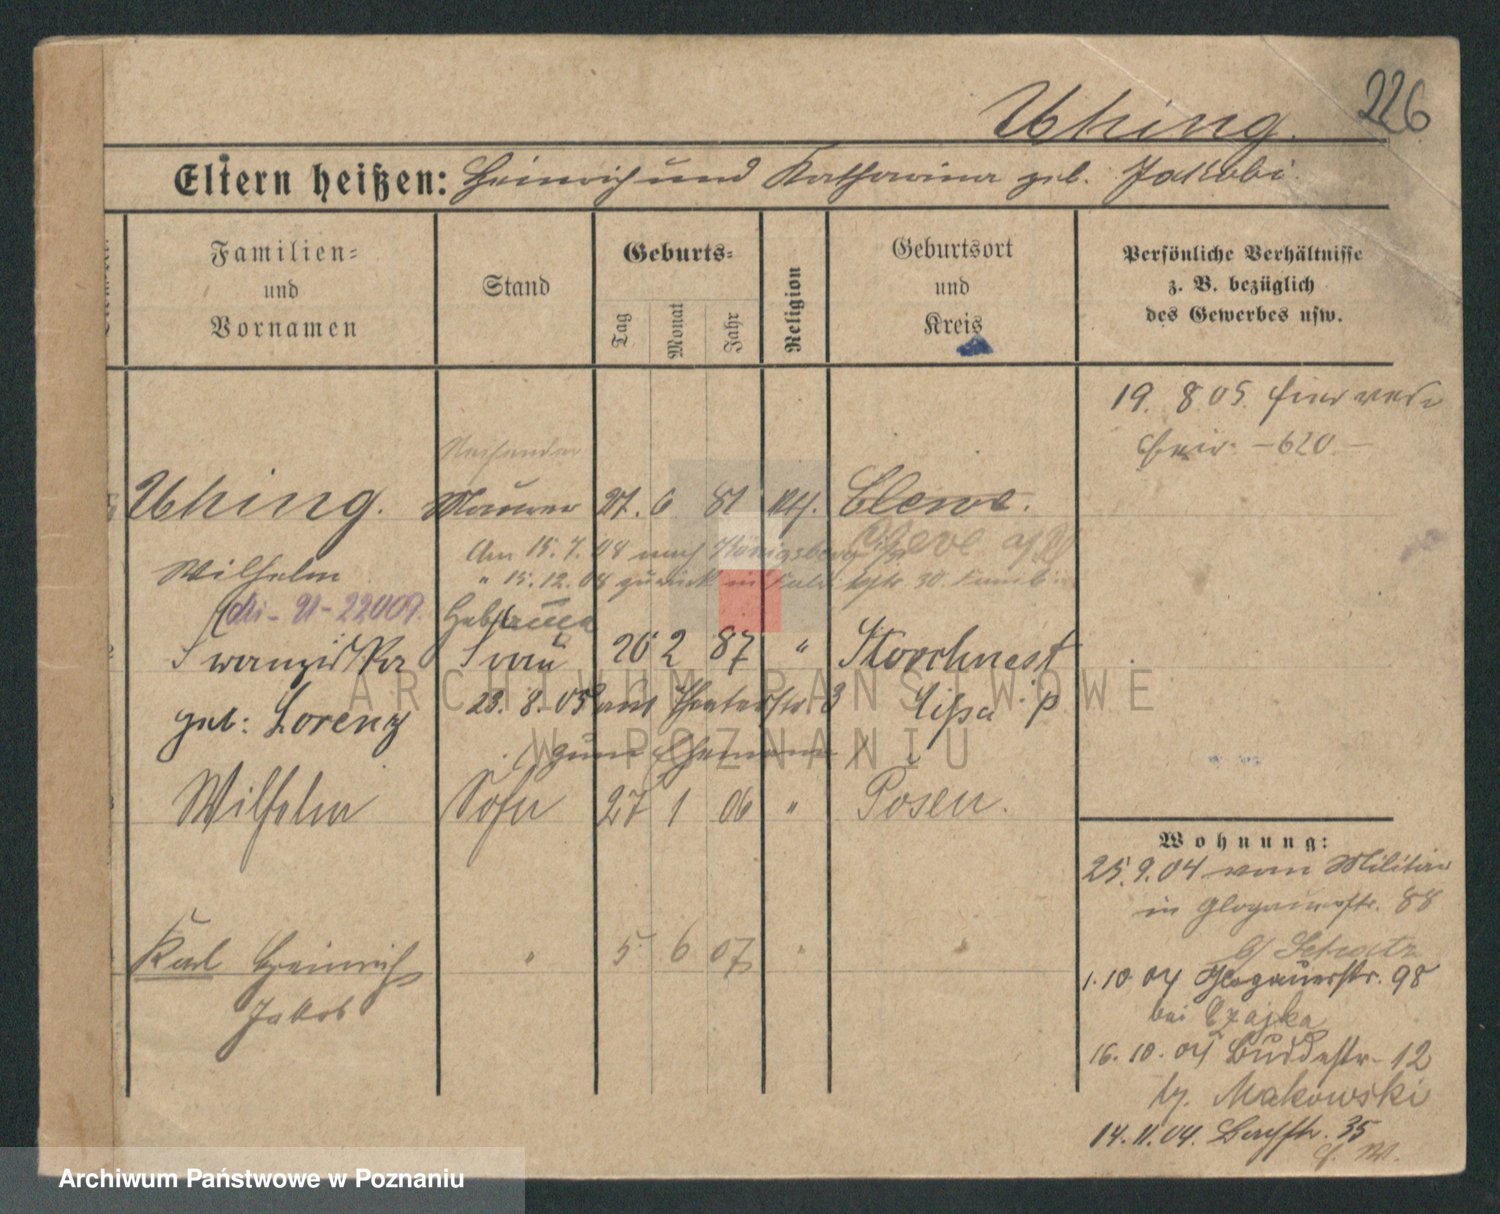 226
Uhing.
Eltern heißen: Heinrich und Katharina geb. Jakobi.
Familien=
und
Vornamen
Stand
Geburts=
Tag
Monat
Jahr
Religion
Geburtsort
und
Kreis
Persönliche Verhältnisse
z. B. bezüglich
des Gewerbes usw.
19. 8. 05.
620
Uhing. Maurer 27. 6 81 kth. Cleve.
Cleve
Wilhelm
Am 15. 7. 08 nach Königsberg
" 15. 12. 08 zurück in
Franziska Frau 20 2 87 " Storchnest
geb: Lorenz
23. 8. 05 aus Theaterstr 3 Lissa i P
(zum Ehemann)
Wilhelm Sohn 27 1 06 " Posen.
Karl Heinrich " 5 6 07 " "
Jakob
Wohnung:
25. 9. 04 vom Militär
in Glogauerstr. 88
b/ Schatz
1. 10 04 Glogauerstr. 98
bei Czajka
16. 10. 04 Buddestr. 12
b/. Makowski
14. 11. 04. Bachstr. 35
ARCHIWUM PAŃSTWOWE
W POZNANIU
Archiwum Państwowe w Poznaniu